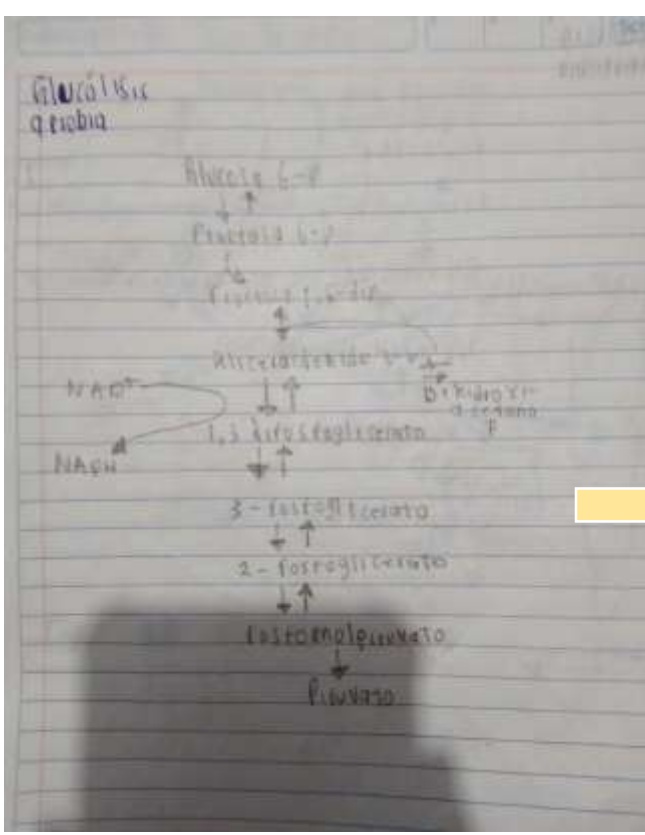 Glucólisis
aerobia
Glucosa 6-P
Fructosa 6-P
Fructosa 1,6-dip
Gliceraldehido 3-P
NAD+
Dihidroxi-
acetona
P
1,3 difosfoglicerato
NADH
3-fosfoglicerato
2-fosfoglicerato
fosfoenolpiruvato
Piruvato